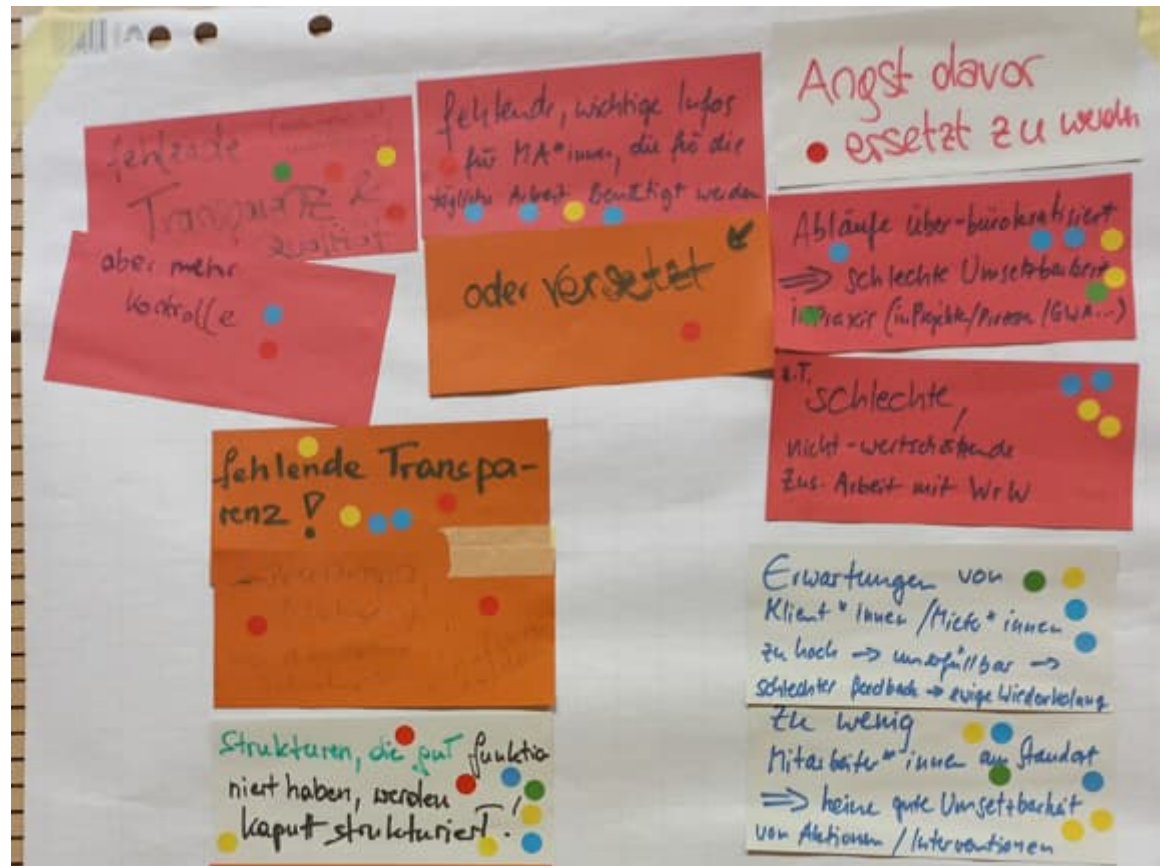 fehlende
Transparenz &
aber mehr
Kontrolle
fehlende, wichtige Infos
für MA*innen, die für die
tägliche Arbeit benötigt werden
oder versetzt
Angst davor
ersetzt zu werden
Abläufe über-bürokratisiert
⇒ schlechte Umsetzbarkeit
in Praxis (in Projekte/Person/GWA...)
z.T. schlechte,
nicht-wertschätzende
Zus. Arbeit mit WrW
fehlende Transpa-
renz!
Strukturen, die gut funktio
niert haben, werden
kaputt strukturiert!
Erwartungen von
Klient*innen/Miete*innen
zu hoch → unerfüllbar →
schlechter feedback → ewige Wiederholung
zu wenig
Mitarbeiter*innen am Standort
⇒ keine gute Umsetzbarkeit
von Aktionen/Interventionen